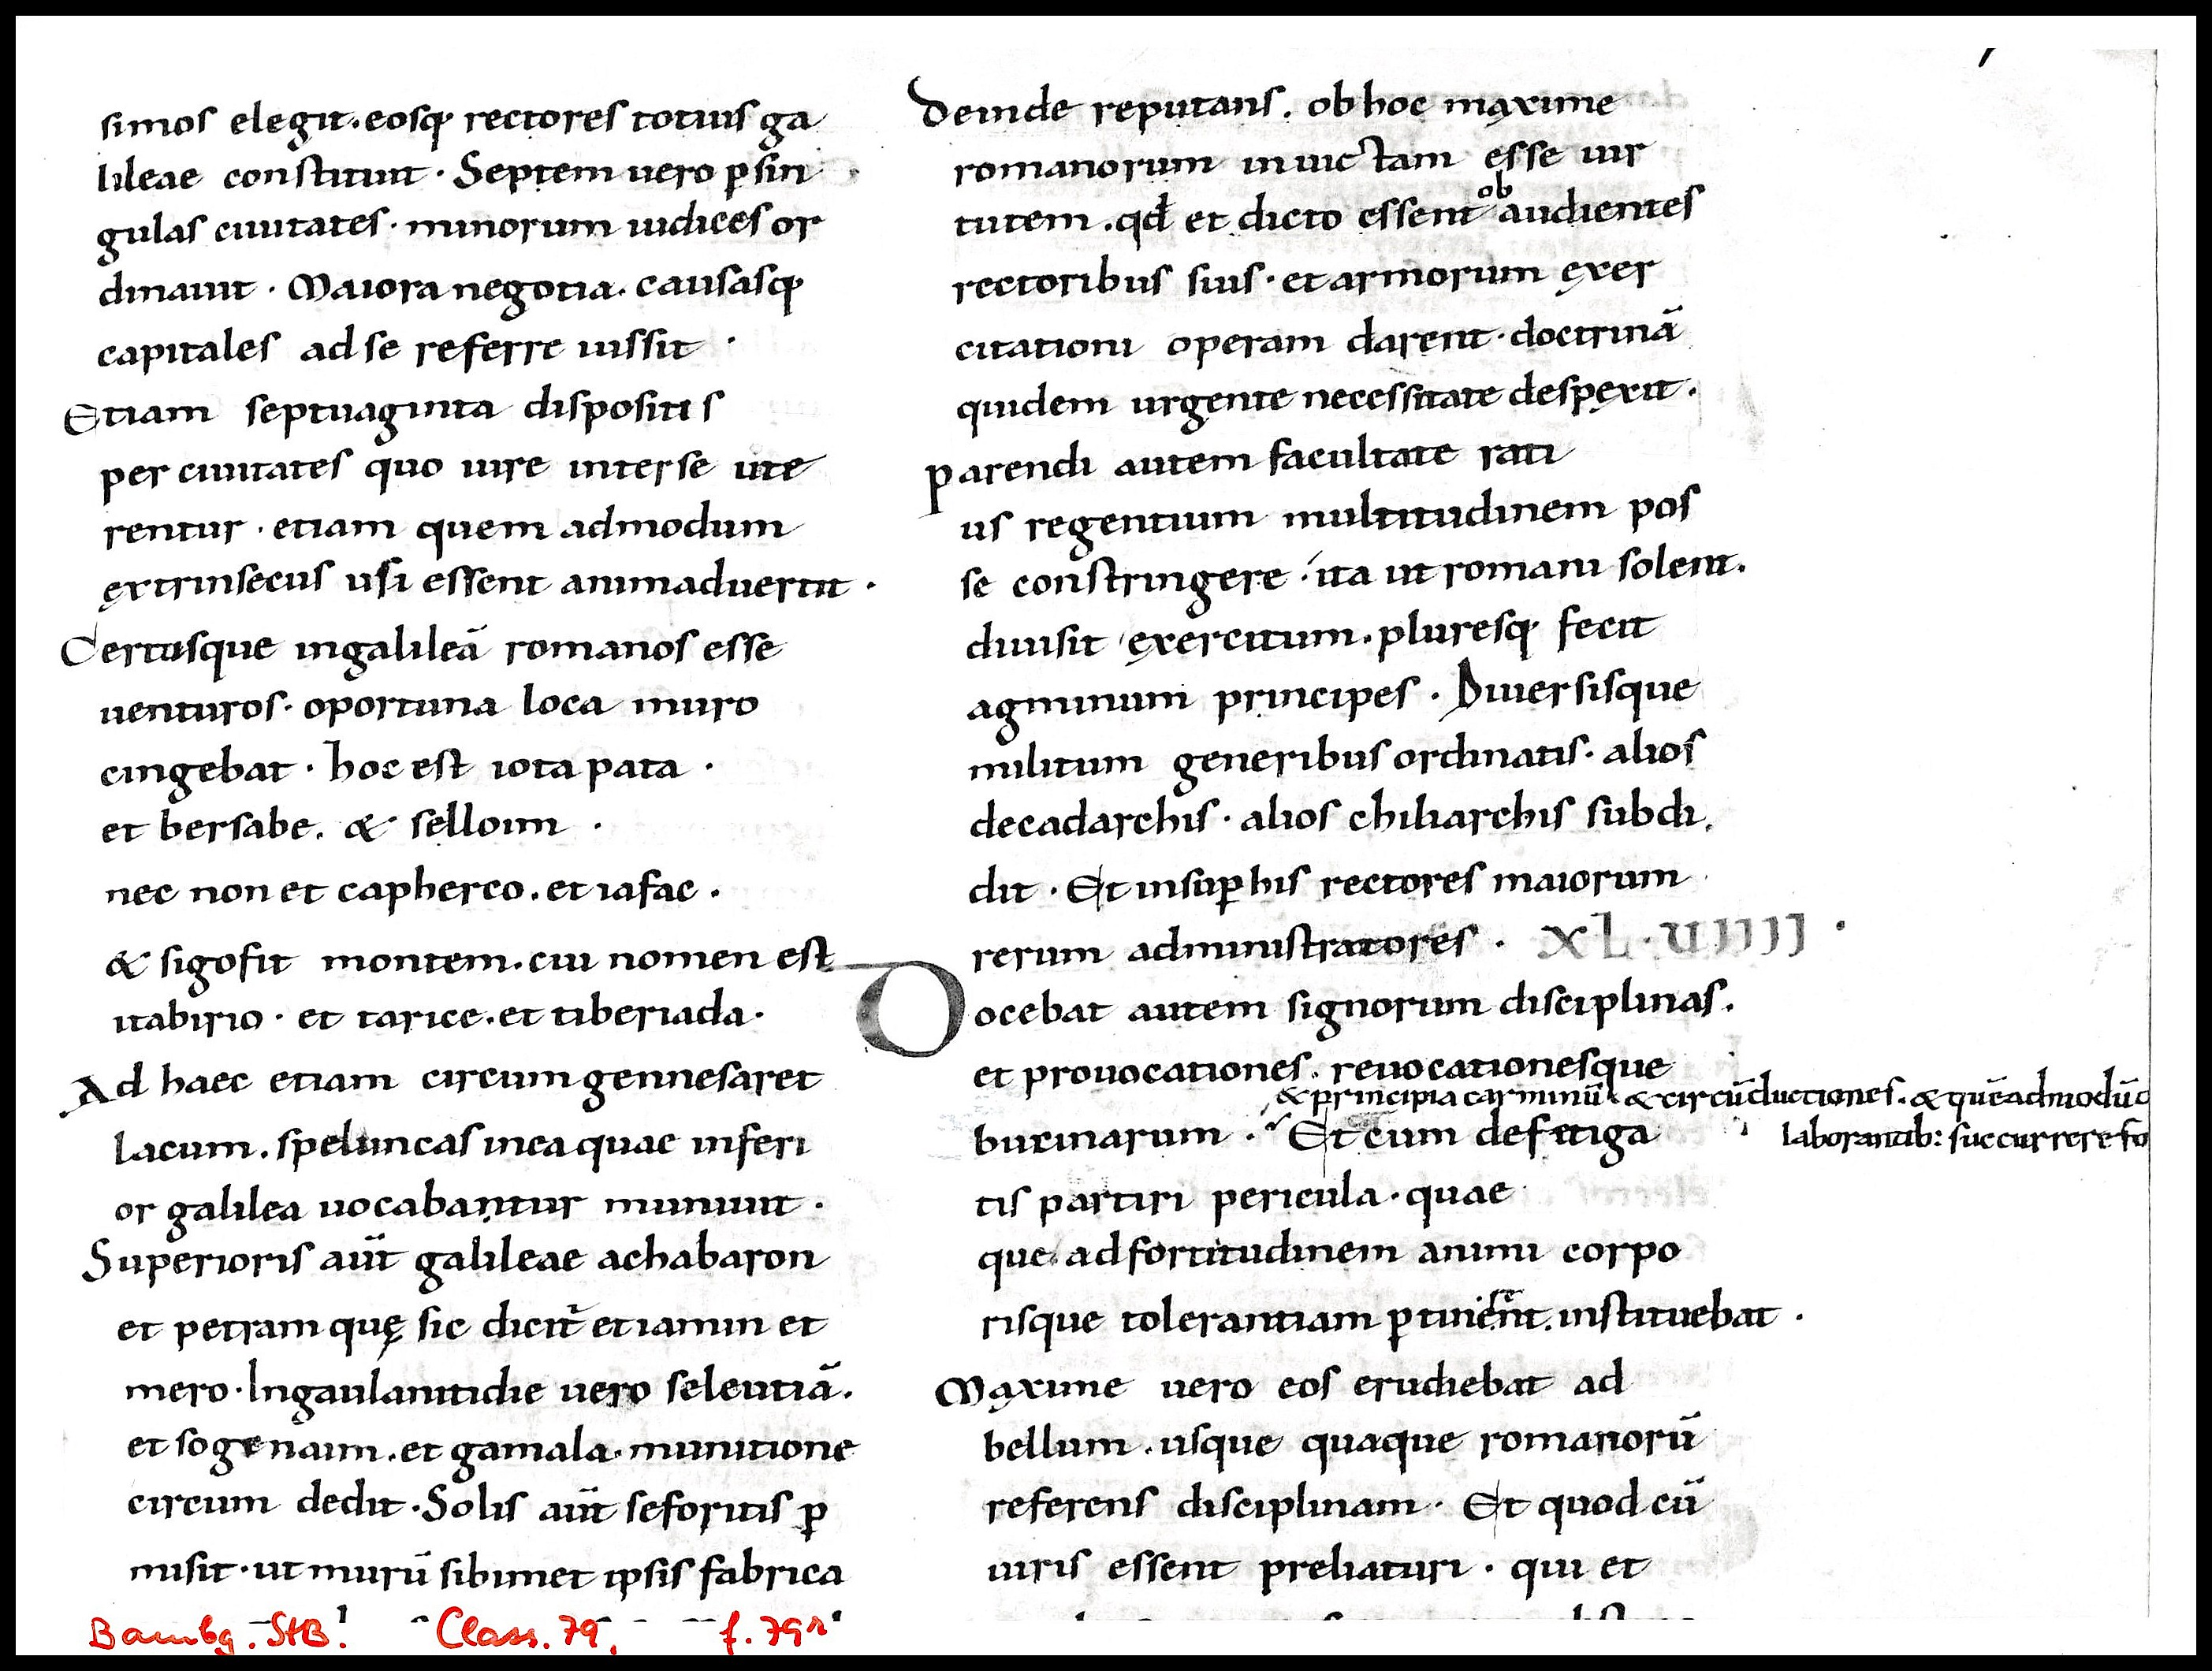 simos elegit. eosq; rectores totius ga
lileae constituit. Septem uero p̲sin
gulas ciuitates. minorum iudices or
dinauit. Maiora negotia. causasq;
capitales ad se referre iussit.
Etiam septuaginta dispositis
per ciuitates quo iure inter se ute
rentur. etiam quem admodum
extrinsecus usi essent animaduertit.
Certusque ingalileā romanos esse
uenturos. oportuna loca muro
cingebat. hoc est iota pata.
et bersabe. & selloim.
nec non et capherco. et iafac.
& sigofit montem. cui nomen est
itabirio. et tarice. et tiberiada.
Ad haec etiam circum gennesaret
lacum. speluncas inea quae inferi
or galilea uocabantur muniuit.
Superioris aūt galileae achabaron
et petram quę sic dicit̄ et iamin et
mero. Ingaulanitidie uero seleutiā.
et sogenaim. et gamala. munitione
circum dedit. Solis aūt seforitis p̲
misit. ut murū sibimet ipsis fabrica
Deinde reputans. ob hoc maxime
romanorum inuictam esse uir
tutem. qđ et dicto essent ob audientes
rectoribus suis. et armorum exer
citationi operam darent. doctrinā
quidem urgente necessitate despexit.
Parendi autem facultate rati
us regentium multitudinem pos
se constringere. ita ut romani solent.
diuisit exercitum. pluresq; fecit
agminum principes. Diuersisque
militum generibus ordinatis. alios
decadarchis. alios chiliarchis subdi
dit. Et insup̲ his rectores maiorum
rerum administratores. XL.UIIII.
Docebat autem signorum disciplinas.
et prouocationes. reuocationesque
& principia carminū. & circūductiones. & quēadmodū
bucinarum. Et cum defetiga
laborantib: succurrere fo
tis partiri pericula. quae
que ad fortitudinem animi corpo
risque tolerantiam p̲tinent. instituebat.
Maxime uero eos erudiebat ad
bellum. usque quaque romanorū
referens disciplinam. Et quod cū
uiris essent preliaturi. qui et
Bambg. StB. Class. 79, f. 79r